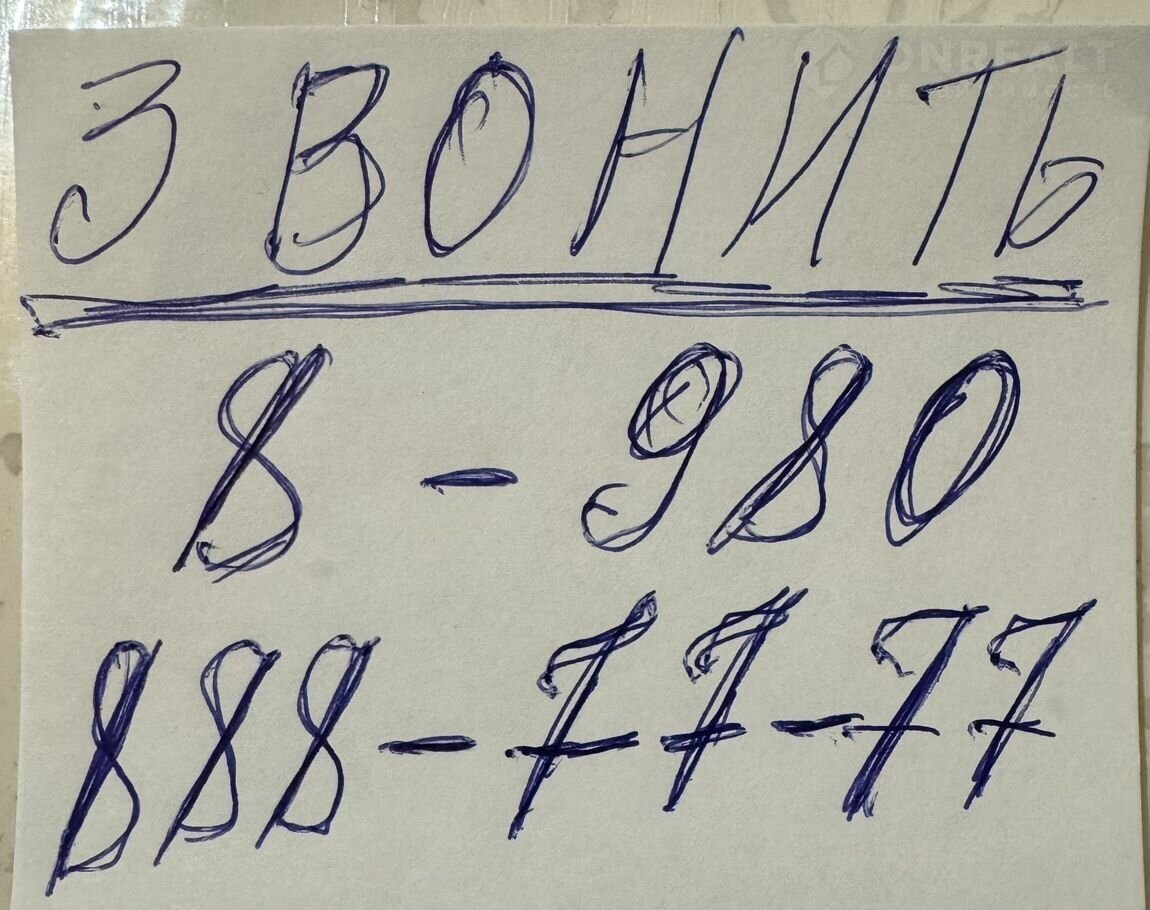 ONREALT
НЕДВИЖИМОСТЬ
ЗВОНИТЬ
8 - 980
888 - 77 - 77